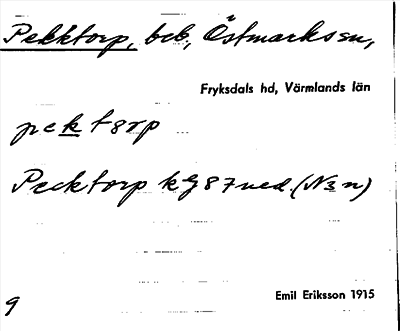 Pekktorp, beb., Östmarks sn,
Fryksdals hd, Värmlands län
pektørp
Pecktorp kG 87 ned. (N3n)
Emil Eriksson 1915
9